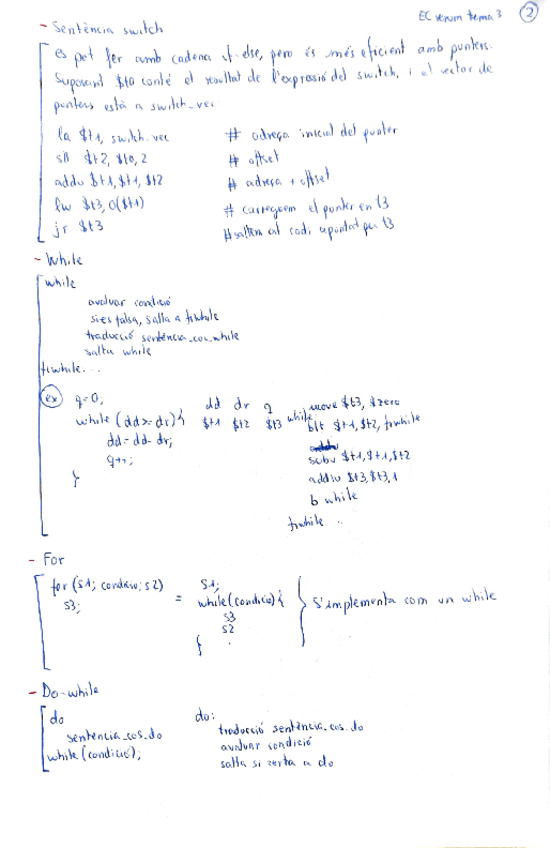 EC resum tema 3 2
- Sentència switch
es pot fer amb cadena if-else, però és més eficient amb punters.
Suposant $t0 conté el resultat de l'expresió del switch, i el vector de
punters està a switch_vec
la $t1, switch_vec # adreça inicial del punter
sll $t2, $t0, 2 # offset
addu $t1, $t1, $t2 # adreça + offset
lw $t3, 0($t1) # carreguem el punter en t3
jr $t3 # saltem al codi apuntat per t3
- While
while
avaluar condició
si es falsa, salta a fiwhile
traducció sentència_cos_while
salta while
fiwhile...
ex q=0; dd dr q move $t3, $zero
while (dd>=dr){ $t1 $t2 $t3 while blt $t1, $t2, fiwhile
dd=dd-dr; subu $t1, $t1, $t2
q++; addiu $t3, $t3, 1
} b while
fiwhile ..
- For
for (s1; condicio; s2) = s1;
s3; while(condicio){ s'implementa com un while
s3
s2
}
- Do-while
do do:
sentencia_cos_do traducció sentència_cos_do
while (condició); avaluar condició
salta si certa a do